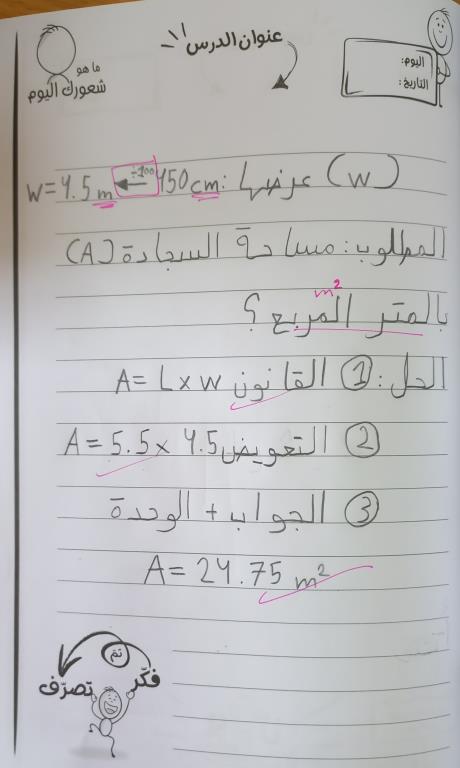 عنوان الدرس
اليوم:
التاريخ:
ما هو
شعورك اليوم
(W) عرضها: 450 cm ÷100 ← W = 4.5 m
المطلوب: مساحة السجادة (A)
بالمتر المربع m² ؟
الحل: ① القانون A = L x W
② التعويض A = 5.5 x 4.5
③ الجواب + الوحدة
A = 24.75 m²
فكّر
ثم
تصرّف